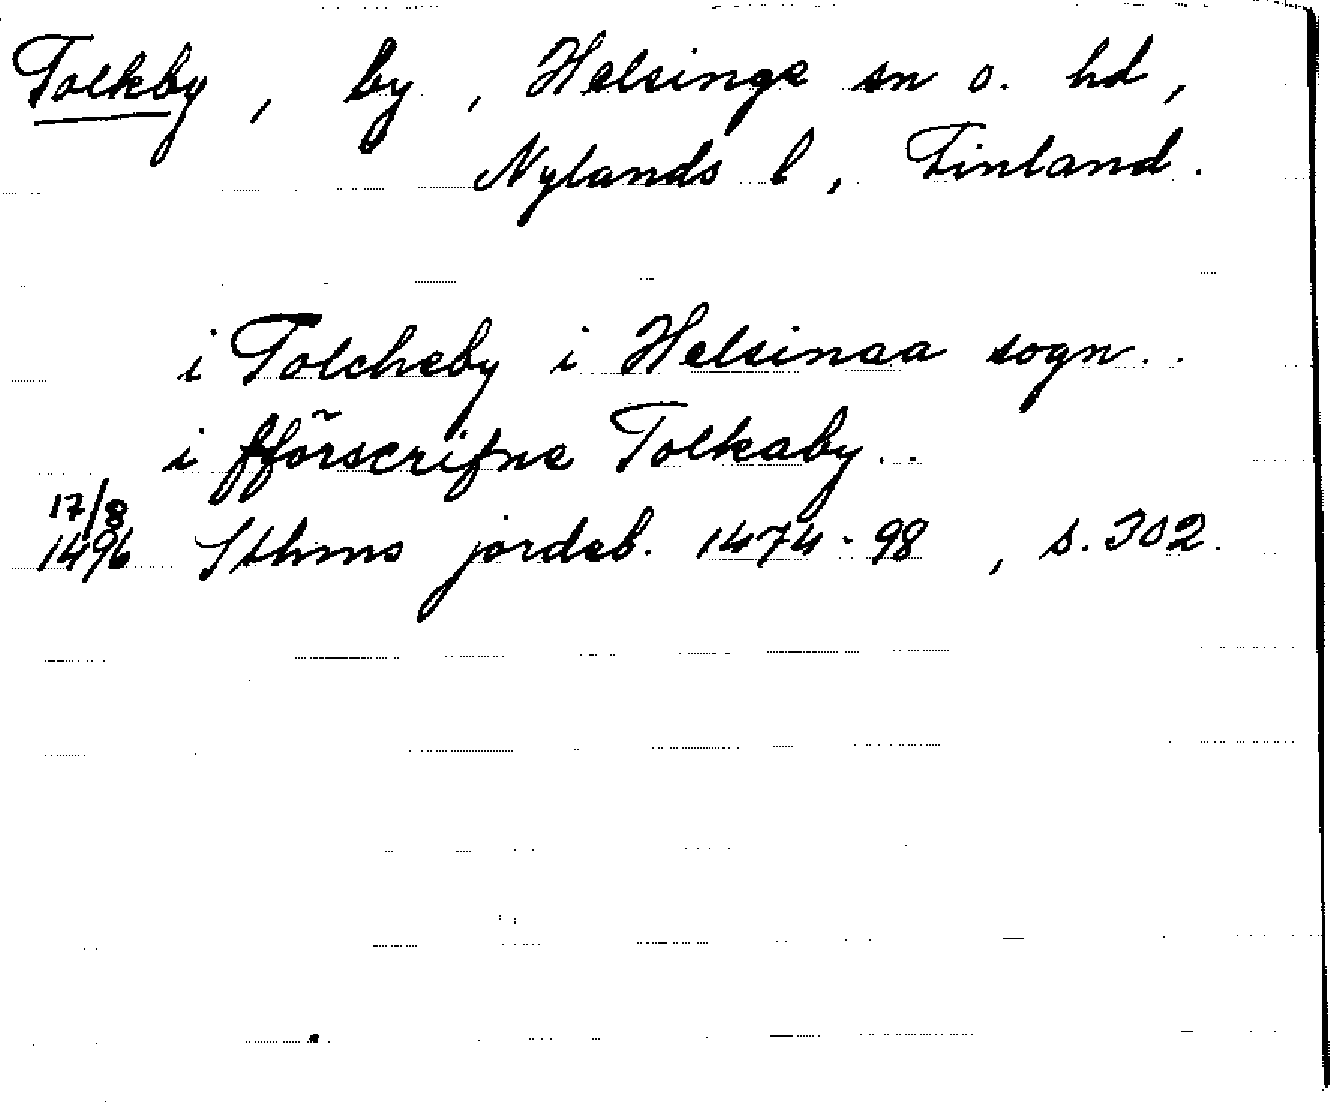 Tolkby, by, Helsinge sn o. hd,
Nylands l, Finland.
i Tolcheby i Helsinaa sogn..
i fförscrifne Tolkaby..
17/8
1496 Sthms jordeb. 1474-98, s. 302.